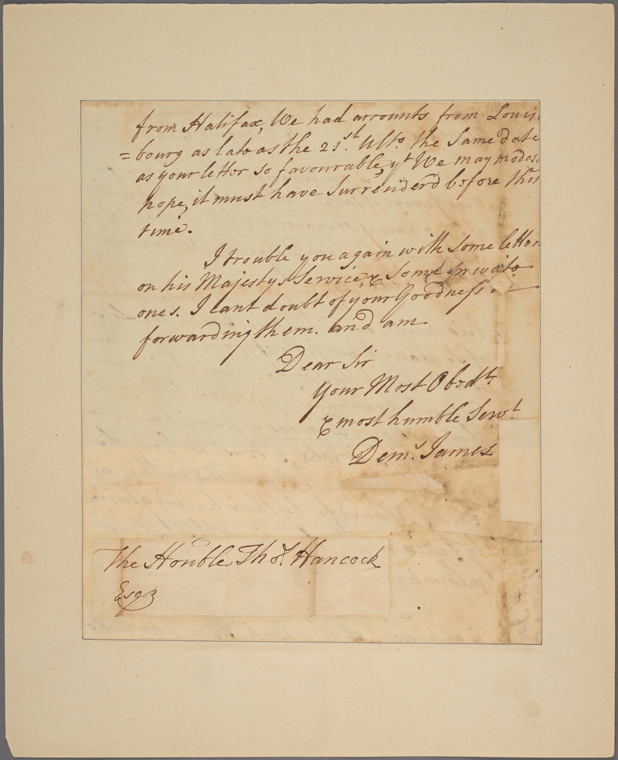 from Halifax, We had accounts from Louis
=bourg as late as the 21.st Ulto. the Same date
as your letter so favourable, yt We may modes.
hope, it must have Surrenderd before this
time.
I trouble you again with Some letters
on his Majestys Service, & Some private
ones. I cant doubt of your Goodness.
forwarding them. and am
Dear Sir
Your Most Obedt.
& most humble Servt.
James
The Honble Thos. Hancock
Esqr